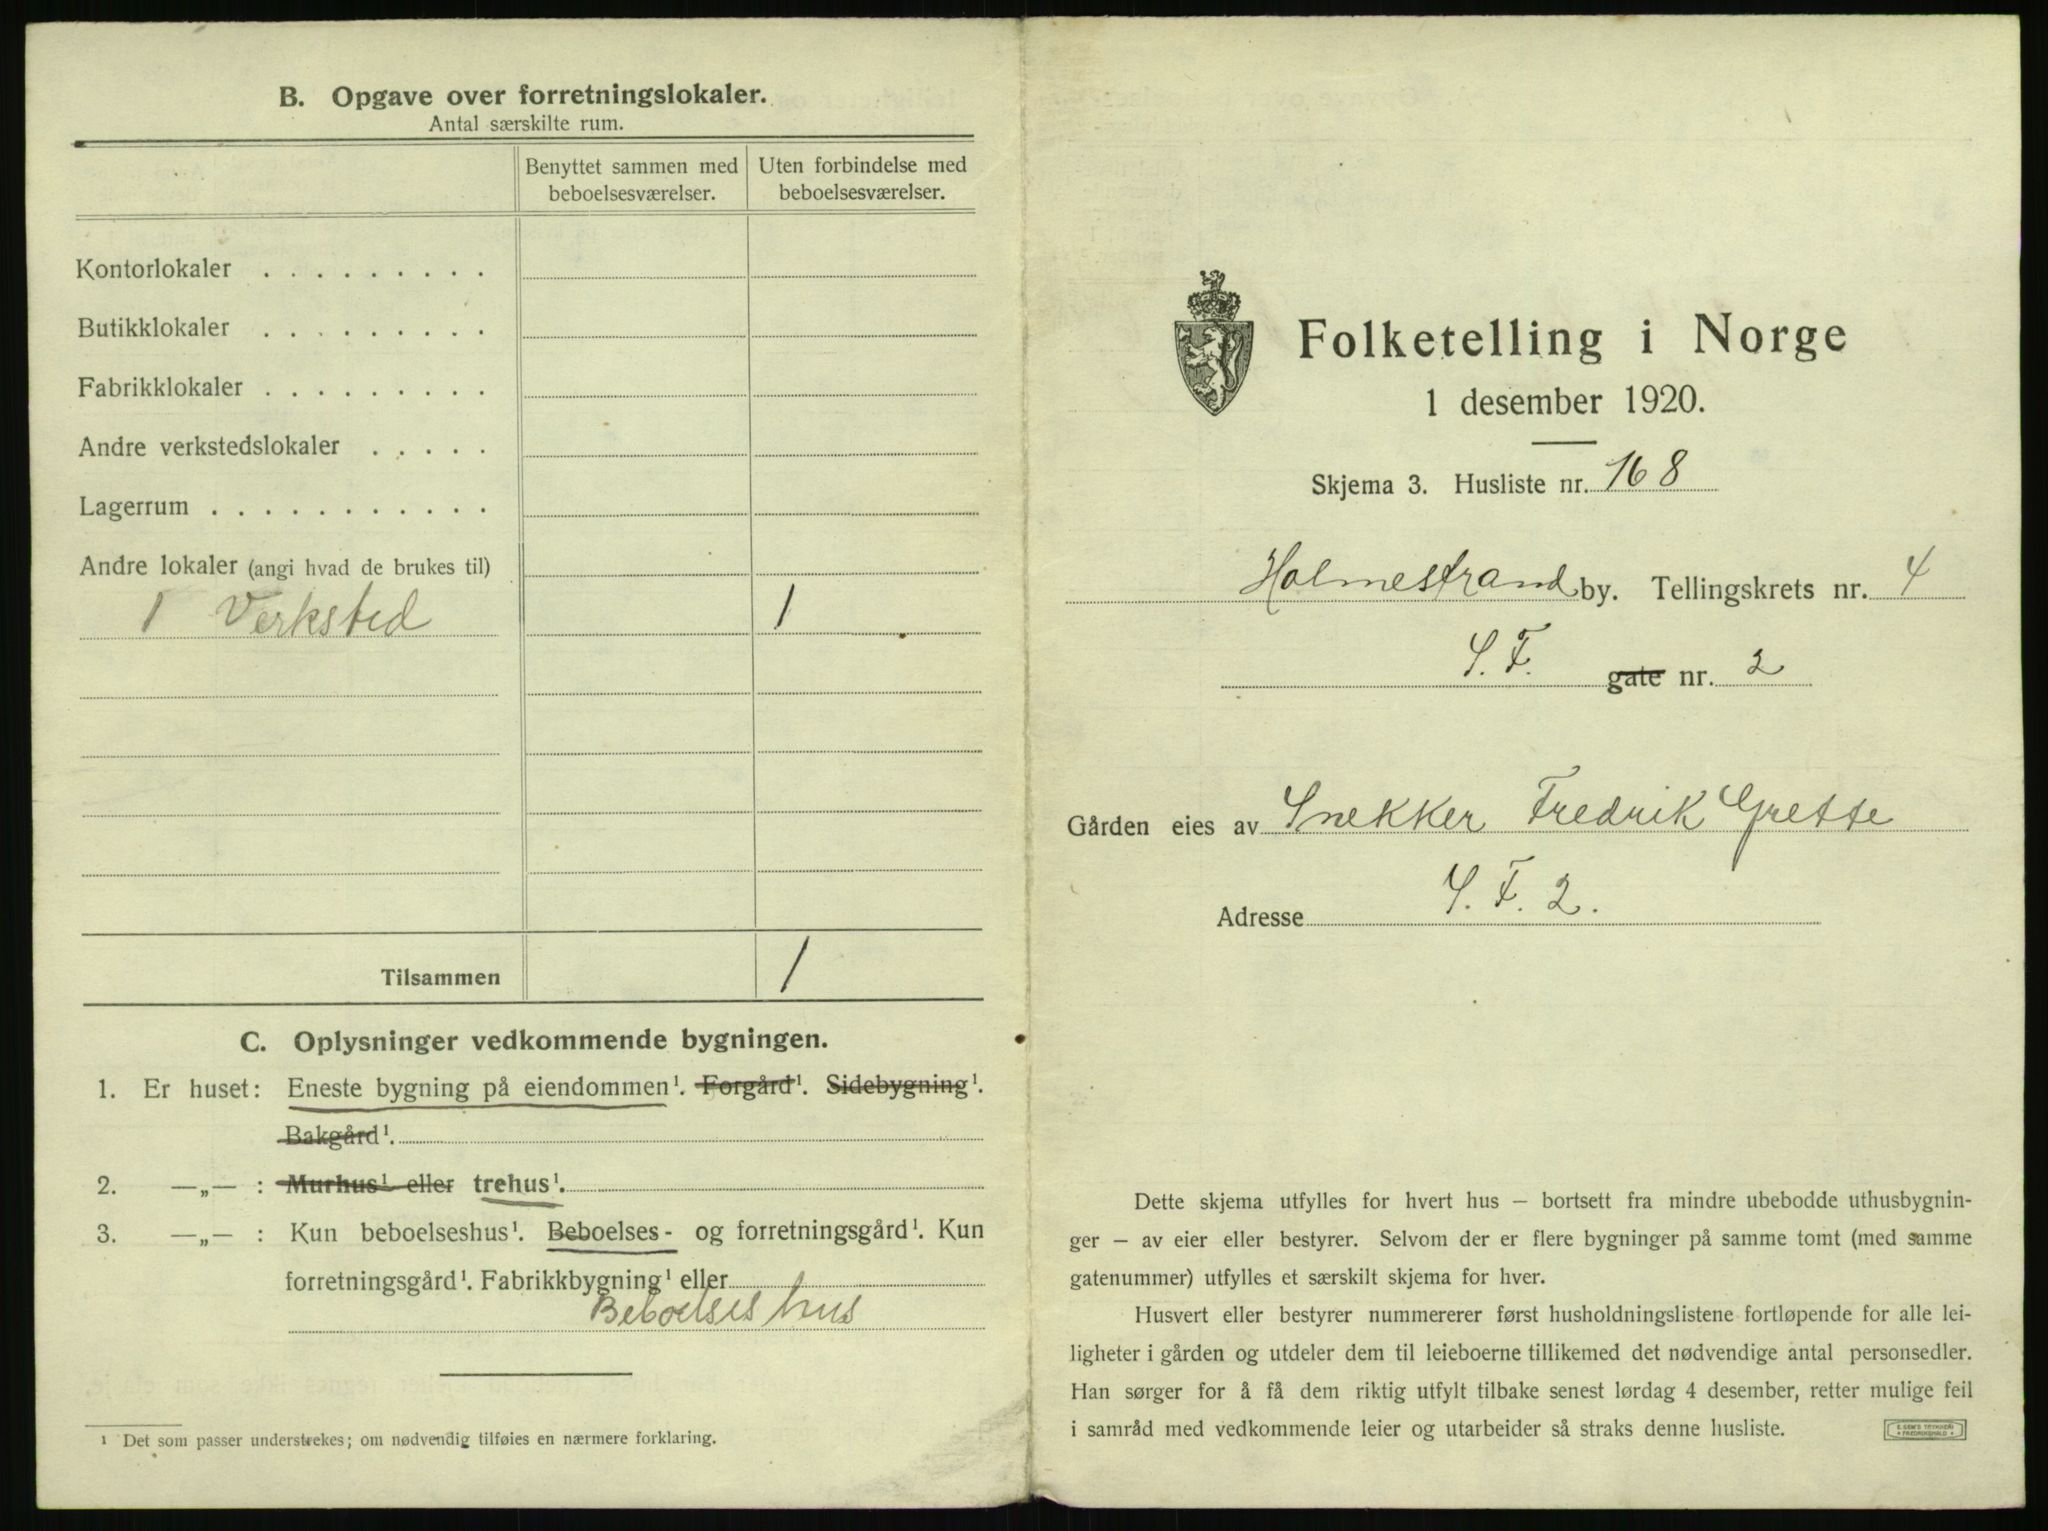 B. Opgave over forretningslokaler.
Antal særskilte rum.
Benyttet sammen med beboelsesværelser.
Uten forbindelse med beboelsesværelser.
Kontorlokaler . . . . . . . . .
Butikklokaler . . . . . . . . .
Fabrikklokaler . . . . . . . . .
Andre verkstedslokaler . . . . .
Lagerrum . . . . . . . . . . .
Andre lokaler (angi hvad de brukes til)
1 Verksted 1
Tilsammen 1
C. Oplysninger vedkommende bygningen.
1. Er huset: Eneste bygning på eiendommen¹. Forgård¹. Sidebygning¹.
Bakgård¹.
2. —„— : Murhus¹ eller trehus¹.
3. —„— : Kun beboelseshus¹. Beboelses- og forretningsgård¹. Kun
forretningsgård¹. Fabrikkbygning¹ eller
Beboelseshus
¹ Det som passer understrekes; om nødvendig tilføies en nærmere forklaring.
Folketelling i Norge
1 desember 1920.
Skjema 3. Husliste nr. 168
Holmestrand by. Tellingskrets nr. 4
S. F. gate nr. 2
Gården eies av Snekker Fredrik Grette
Adresse S. F. 2.
Dette skjema utfylles for hvert hus – bortsett fra mindre ubebodde uthusbygnin-
ger – av eier eller bestyrer. Selvom der er flere bygninger på samme tomt (med samme
gatenummer) utfylles et særskilt skjema for hver.
Husvert eller bestyrer nummererer først husholdningslistene fortløpende for alle lei-
ligheter i gården og utdeler dem til leieboerne tillikemed det nødvendige antal personsedler.
Han sørger for å få dem riktig utfylt tilbake senest lørdag 4 desember, retter mulige feil
i samråd med vedkommende leier og utarbeider så straks denne husliste.